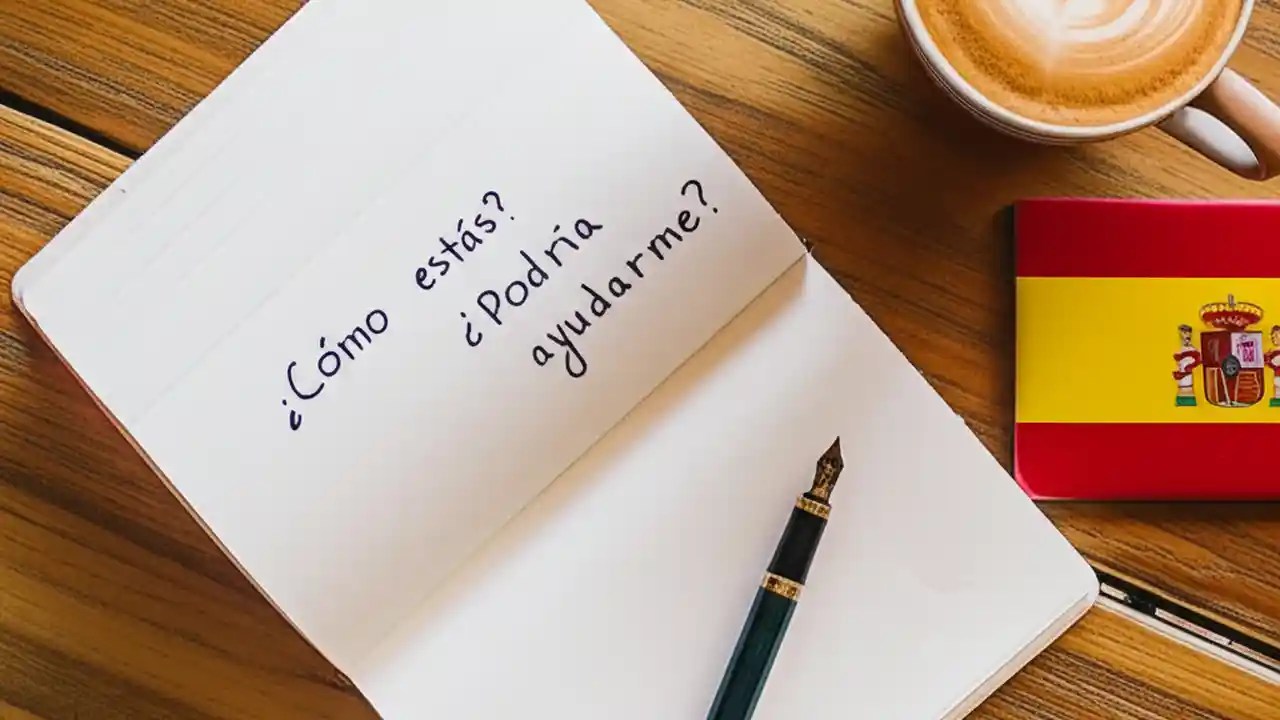 ¿Cómo estás?
¿Podría
ayudarme?